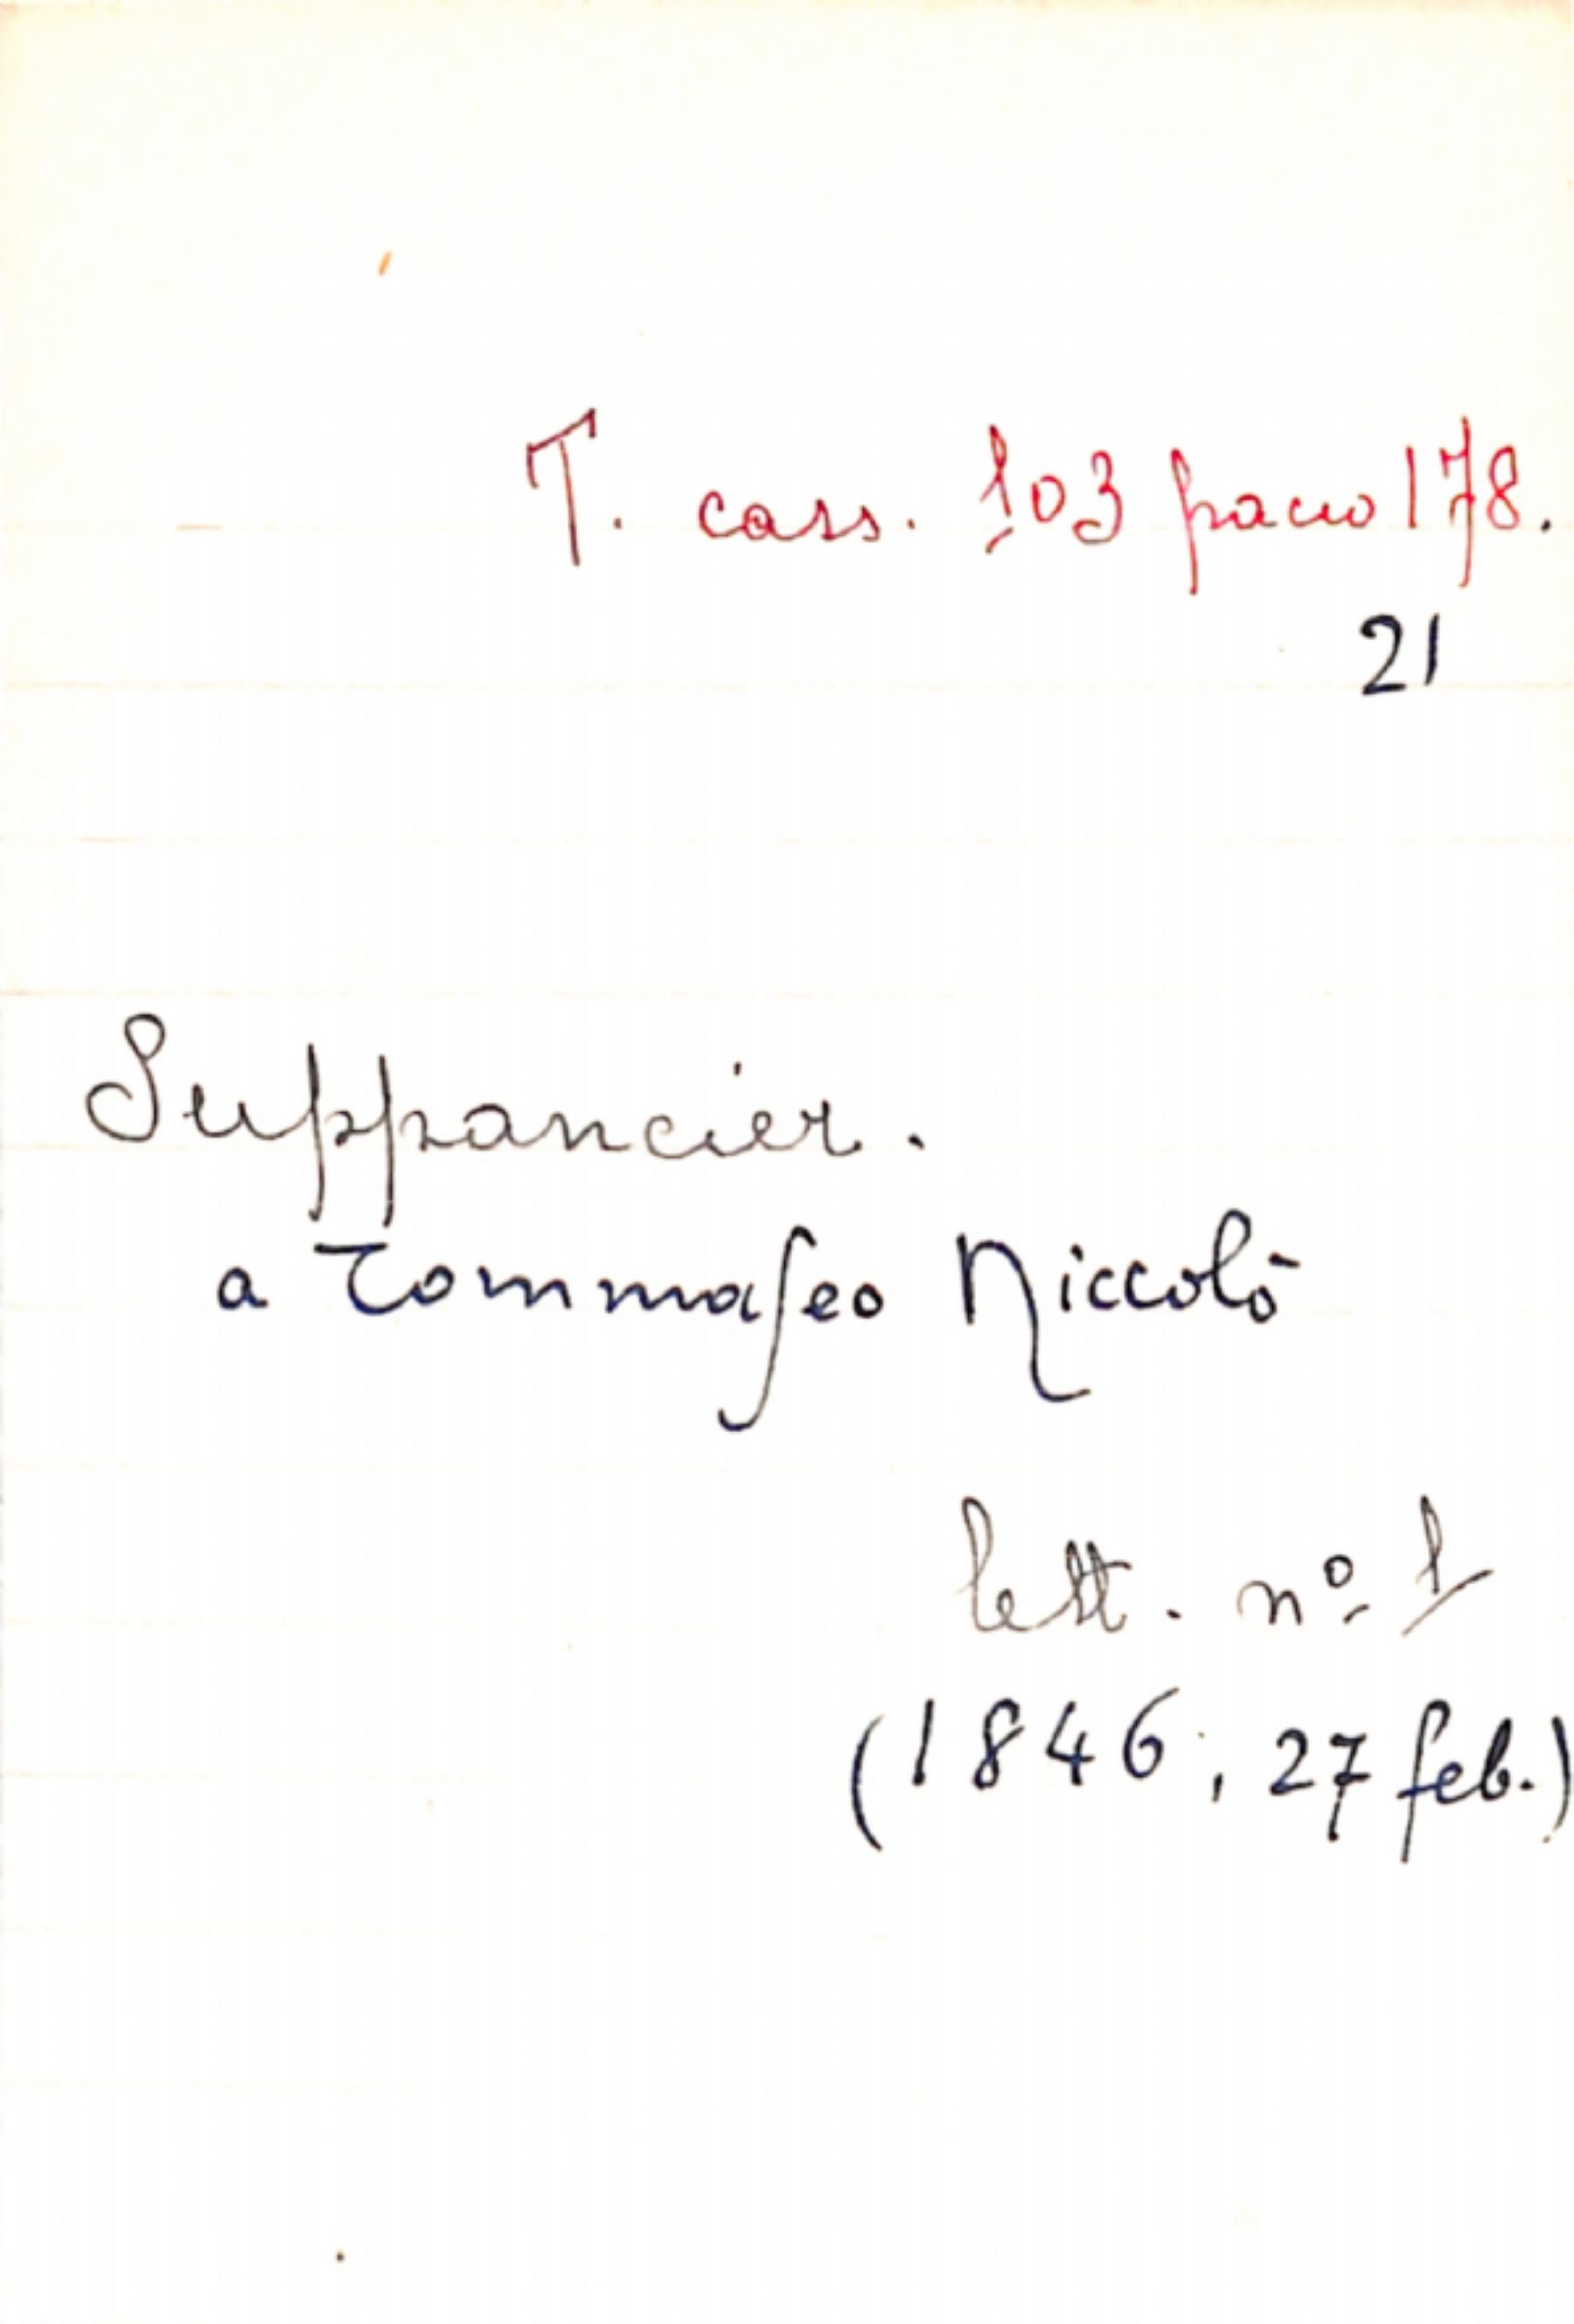 T. cass. 103 pacco 178.
21
Suppancier.
a Tommaseo Niccolò
lett. nº 1
(1846, 27 feb.)